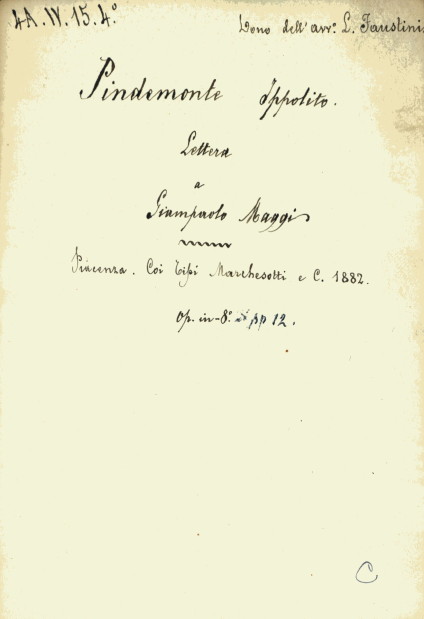 4A. IV. 15. 4.º
Dono dell' avv.º L. Faustini
Pindemonte Ippolito.
Lettera
a
Giampaolo Maggi
Piacenza. Coi Tipi Marchesotti e C. 1882.
Op. in-8.º pp 12.
C